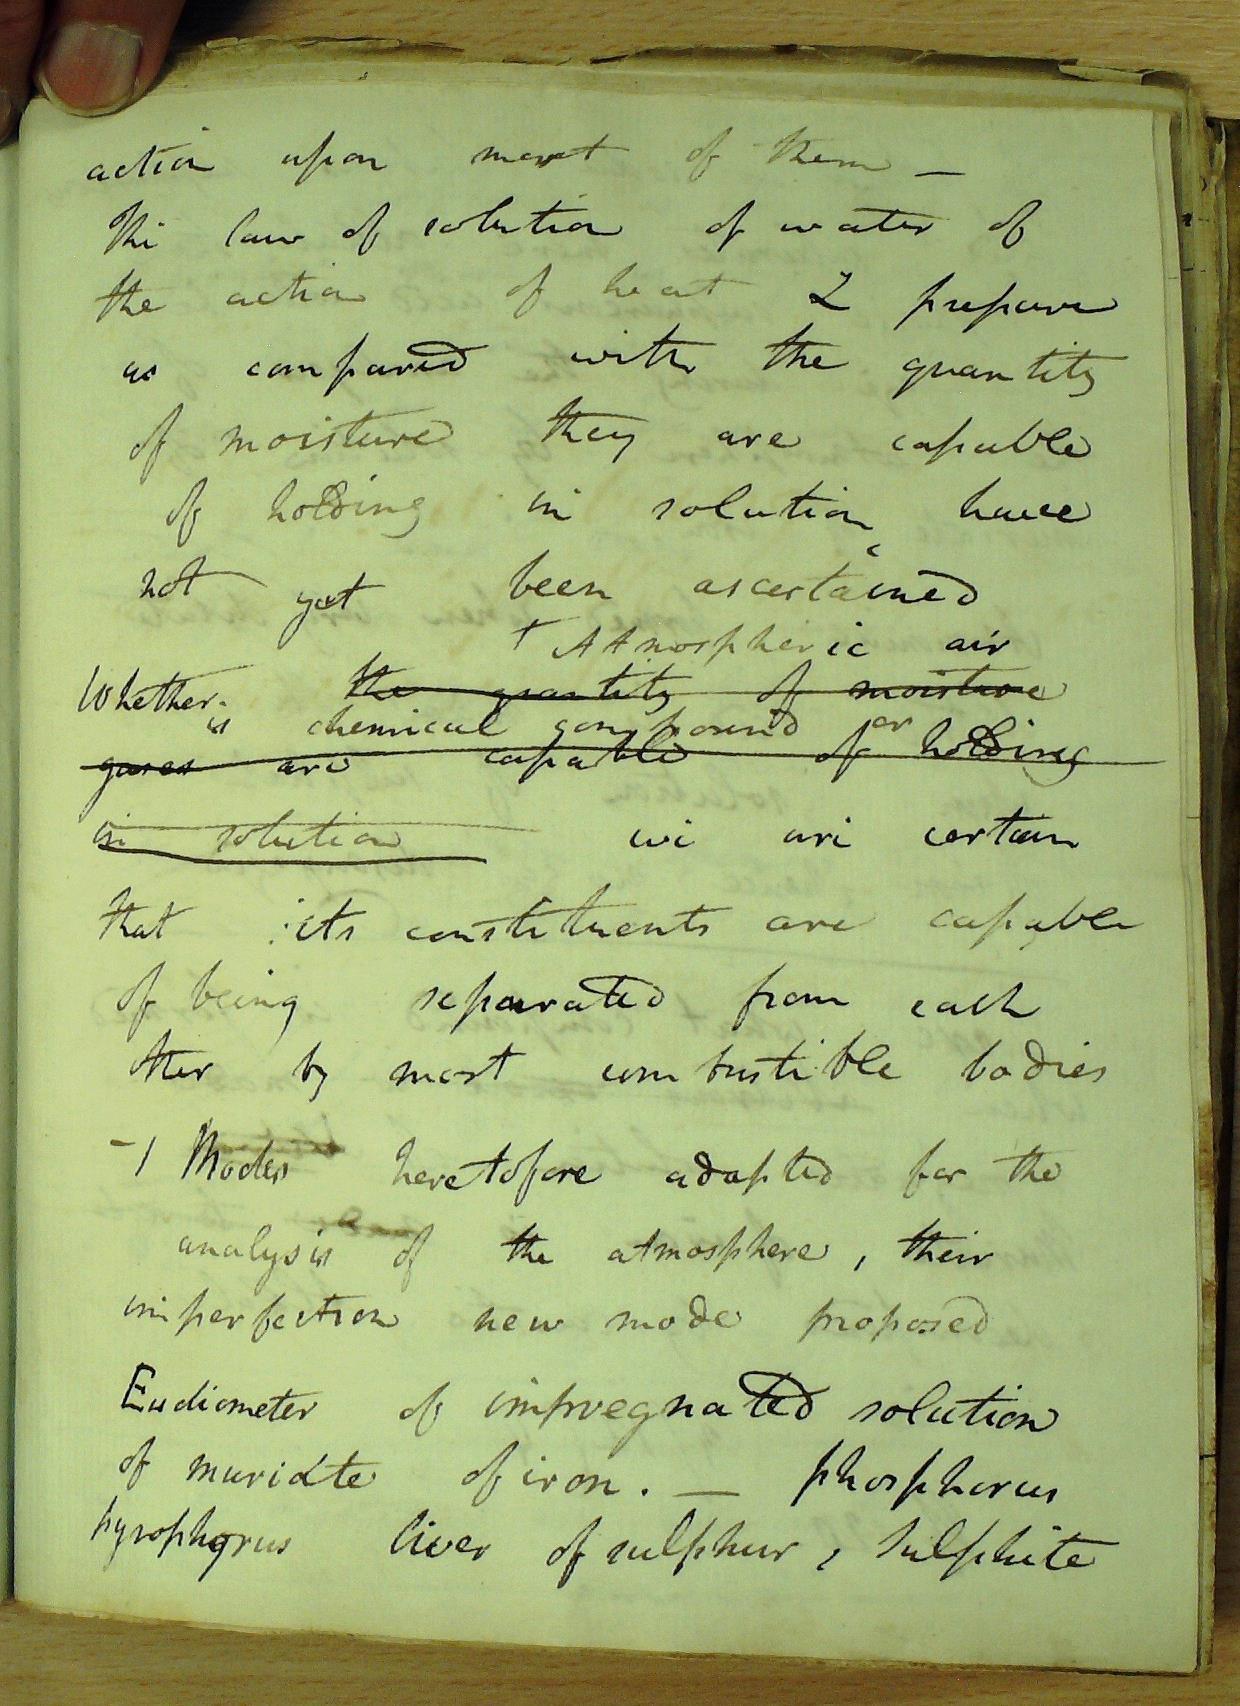 action upon most of them —
The law of solution of water of
the action of heat & pressure
as compared with the quantity
of moisture they are capable
of holding in solution have
not yet been ascertained
+ Atmospheric air
Whether the quantity of moisture
is chemical compound or
gases are capable of holding
in solution we are certain
that its constituents are capable
of being separated from each
other by most combustible bodies
-1 Modes heretofore adapted for the
analysis of the atmosphere, their
imperfection new mode proposed
Eudiometer of impregnated solution
of muriate of iron. — phosphorus
pyrophorus liver of sulphur, sulphite